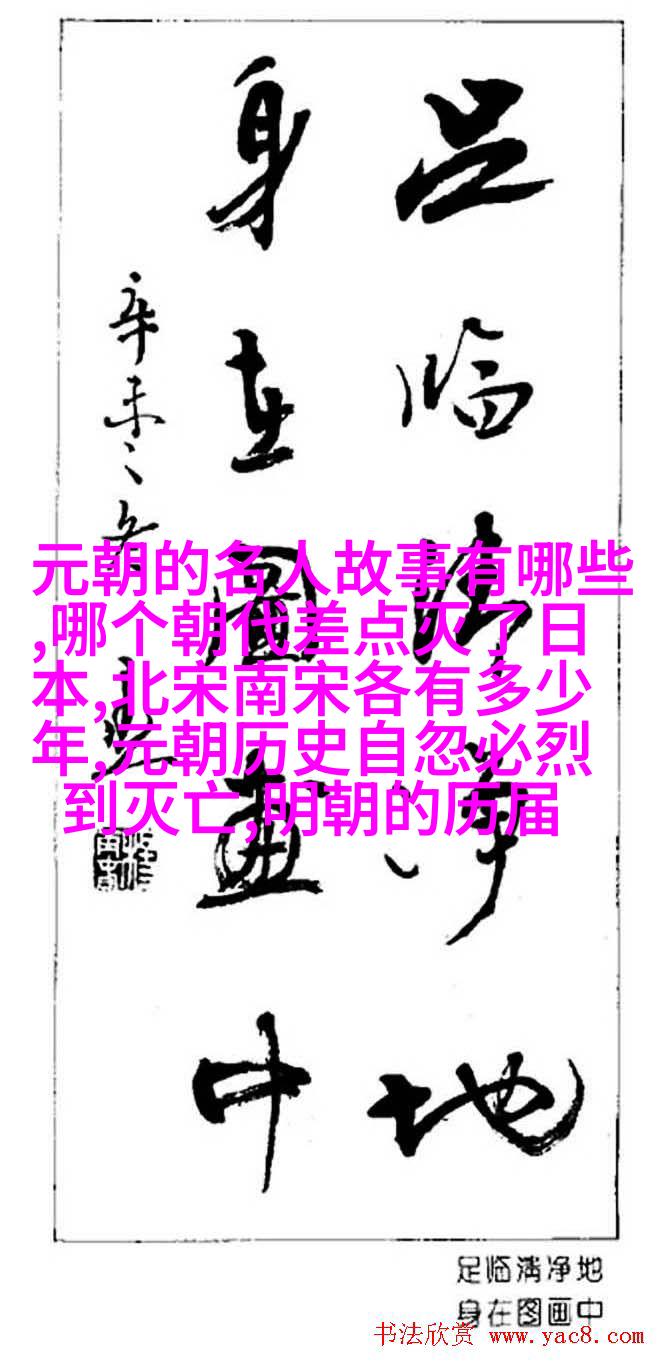 足临清净地
身在图画中
辛未之冬
元朝的名人故事有哪些
,哪个朝代差点灭了日
本,北宋南宋各有多少
年,元朝历史自忽必烈
到灭亡,明朝的历届
足临清净地
身在图画中
书法欣赏 www.yac8.com